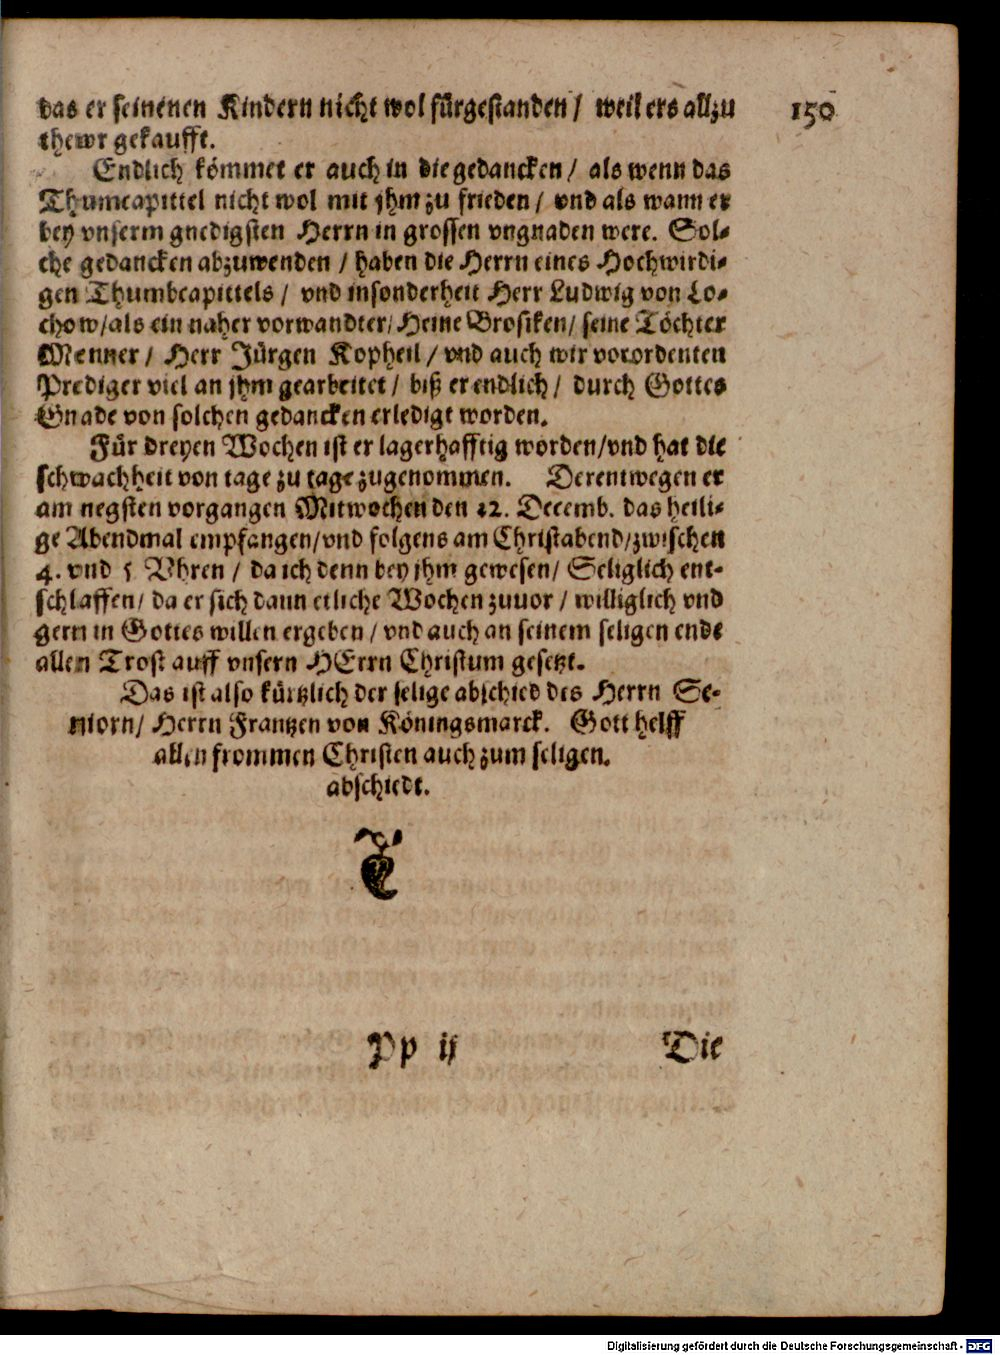 das er seinenen Kindern nicht wol fürgestanden / weil ers allzu
150
thewr gekaufft.
Endlich kömmet er auch in die gedancken / als wenn das
Thumcapittel nicht wol mit jhm zu frieden / vnd als wann er
bey vnserm gnedigsten Herrn in grossen vngnaden were. Sol-
che gedancken abzuwenden / haben die Herrn eines Hochwirdi-
gen Thumbcapittels / vnd insonderheit Herr Ludwig von Lo-
chow/als ein naher vorwandter/ Heine Brosiken/ seine Töchter
Menner / Herr Jürgen Kopheil / vnd auch wir vorordenten
Prediger viel an jhm gearbeitet / biß er endlich / durch Gottes
Gnade von solchen gedancken erledigt worden.
Für dreyen Wochen ist er lagerhafftig worden/vnd hat die
schwachheit von tage zu tage zugenommen. Derentwegen er
am negsten vorgangen Mitwochen den 12. Decemb. das heili-
ge Abendmal empfangen/vnd folgens am Christabend/zwischen
4. vnd 5 Vhren / da ich denn bey jhm gewesen/ Seliglich ent-
schlaffen/ da er sich dann etliche Wochen zuuor / williglich vnd
gern in Gottes willen ergeben / vnd auch an seinem seligen ende
allen Trost auff vnsern HErrn Christum gesetzt.
Das ist also kürtzlich der selige abschied des Herrn Se-
niorn/ Herrn Frantzen von Köningsmarck. Gott helff
allen frommen Christen auch zum seligen.
abschiedt.
Pp ij
Die
Digitalisierung gefördert durch die Deutsche Forschungsgemeinschaft - DFG